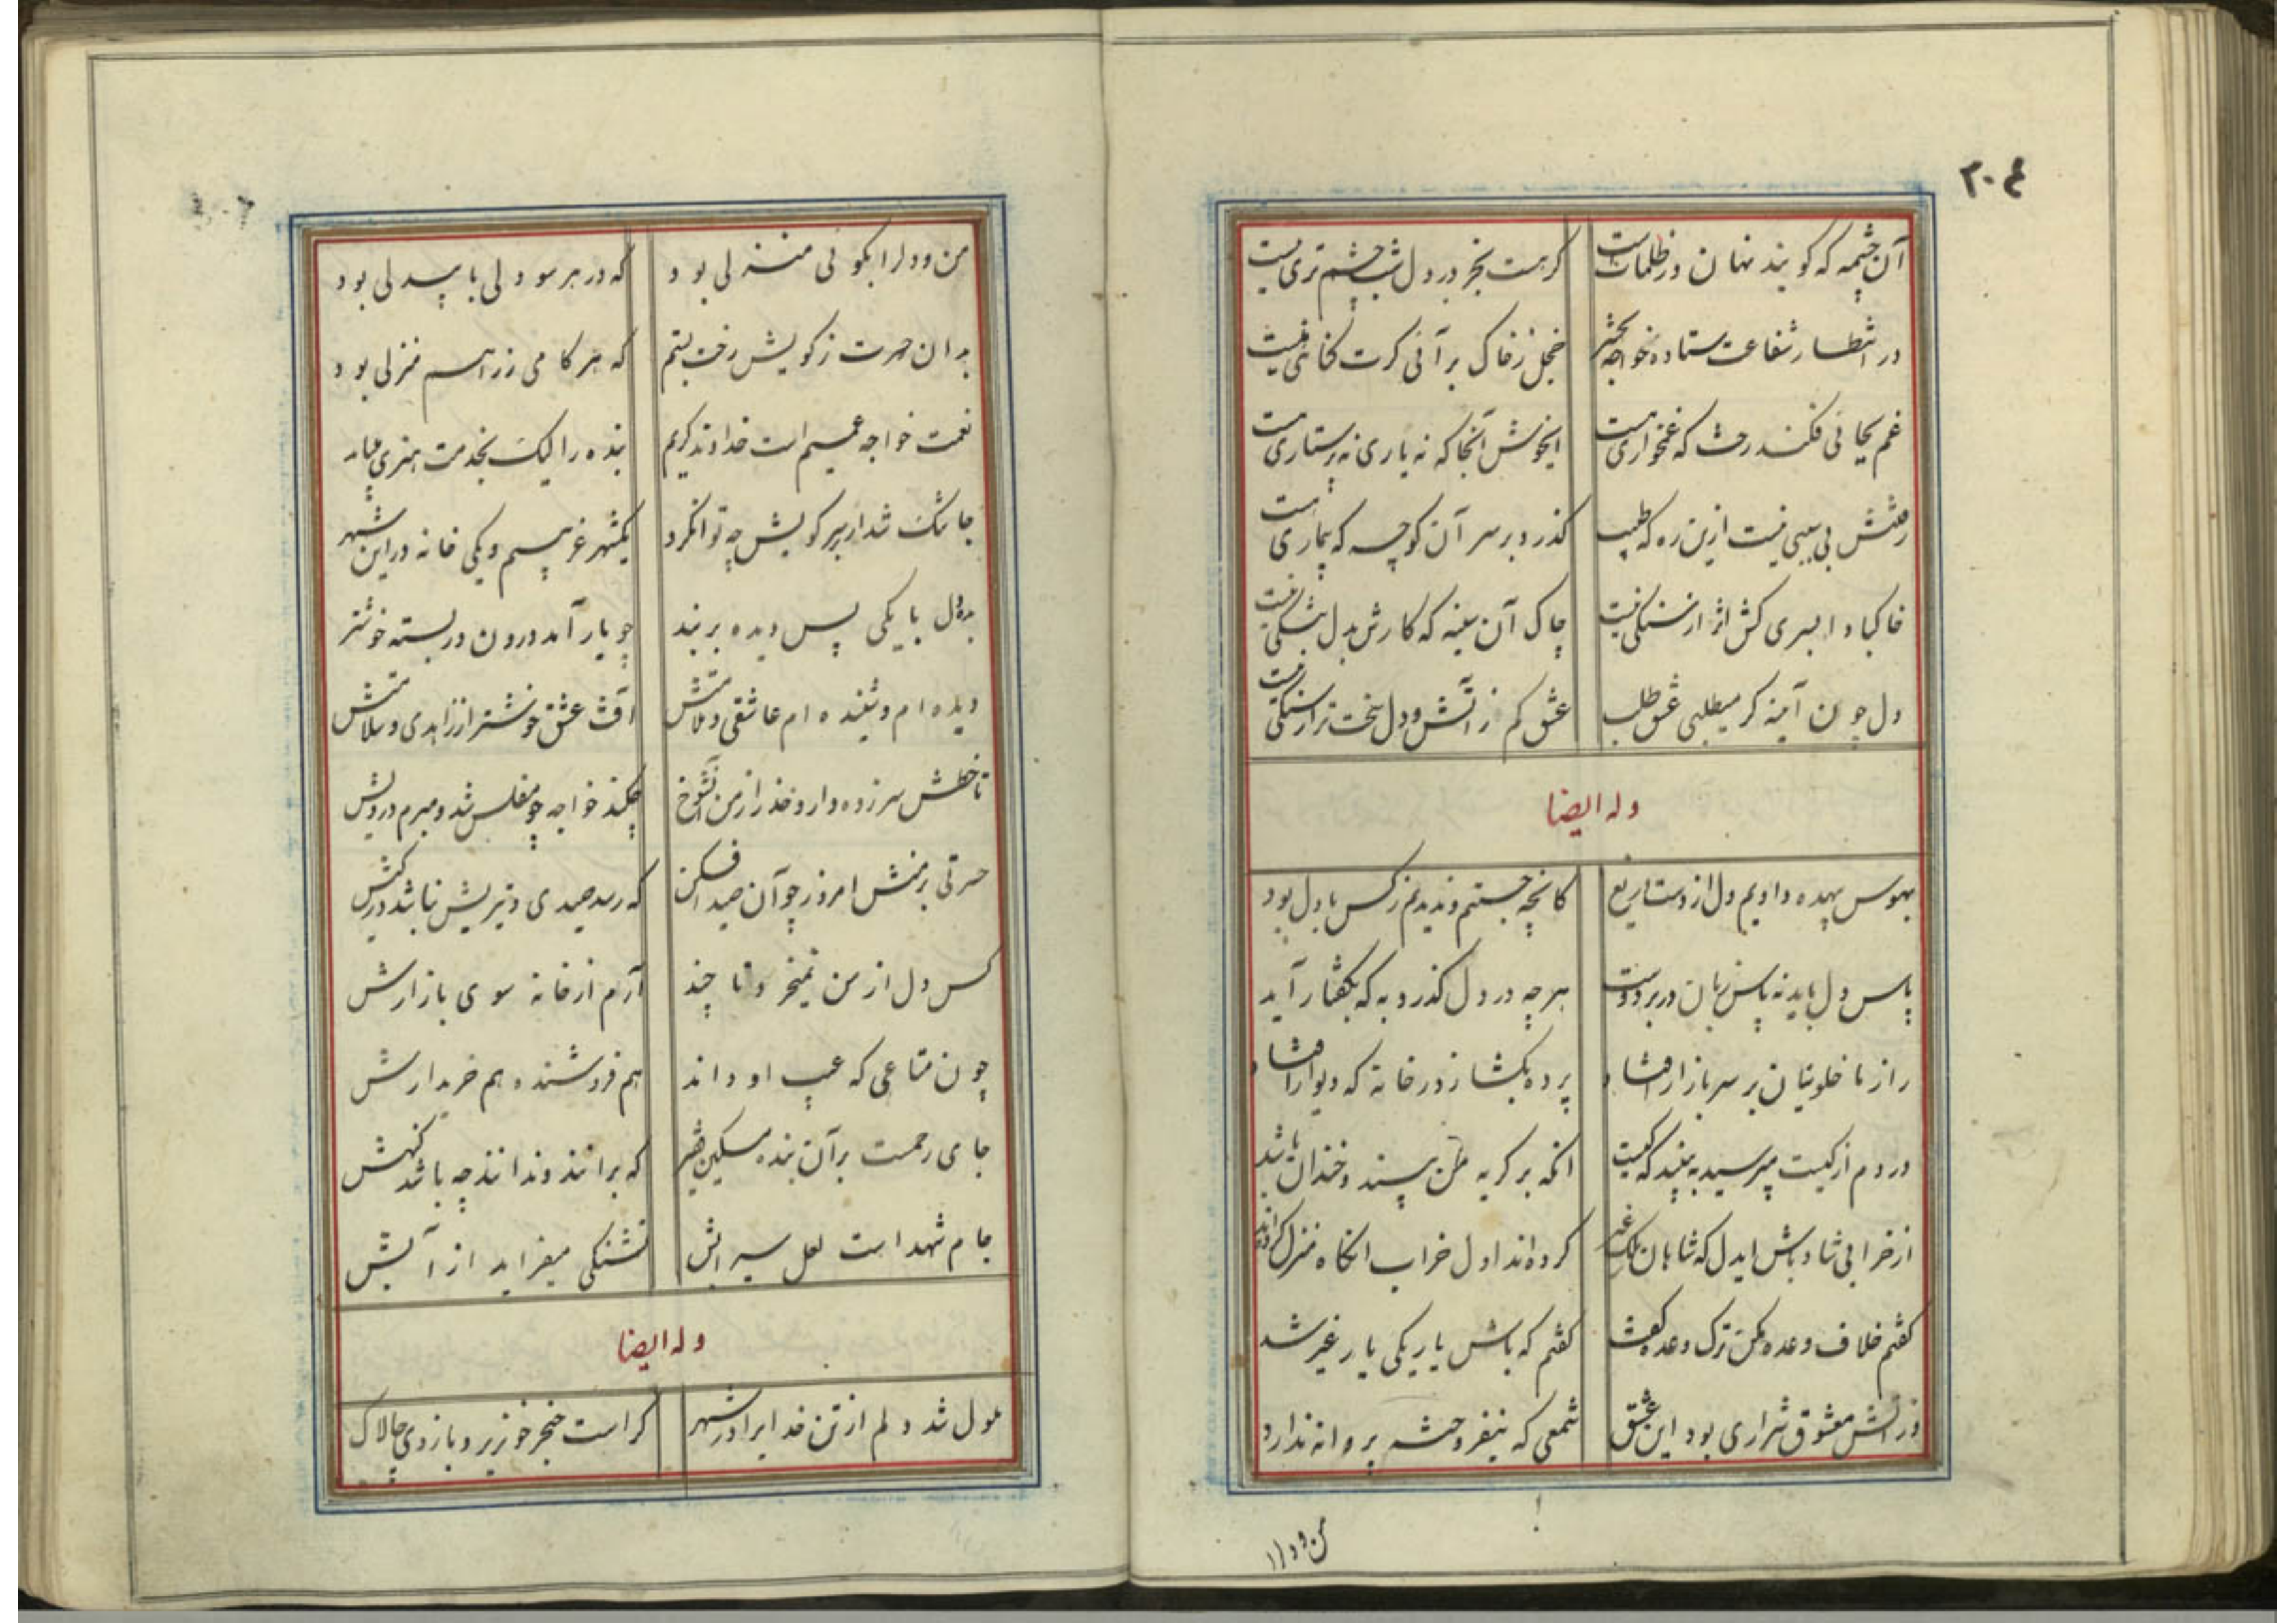 ۲۰۴
آن چشمه که کویند نهان در ظلمات است کر هست بجز در دل شب چشم تری نیست
در انتظار شفاعت ستاده خواجه بحشر خجل ز خاک برآنی کرت کناهی نیست
غم بجائی فکند رخت که غمخواری هست ایخوش آنجا که نه یاری نه پرستاری هست
رفتنش بی سببی نیست ازین ره که طبیب کذرد بر سر آن کوچه که بیماری هست
خاک باد ابسری کش اثر از سنکی نیست چاک آن سینه که کارش بدل تنکی نیست
دل چون آینه کر میطلبی عشق طلب عشق کم ز آتش و دل سخت تر از سنکی نیست
وله ایضا
بهوس بیهده دادیم دل از دست دریغ کانچه جستیم و ندیدیم ز کس با دل بود
پاس دل باید نه پاس زبان در بر دوست هر چه در دل کذرد به که بکفتار آید
راز ما خلوتیان بر سر بازار افتاد پرده بکشا ز در خانه که دیوار افتاد
دردم از کیست مپرسید ببینید که کیست انکه بر کریه من بیند و خندان باشد
از خرابی شاد باش ایدل که شاهان ملک غیر کرده اند اول خراب انکاه منزل کرده اند
کفتم خلاف وعده مکن ترک وعده کفت کفتم که باش یار یکی یار غیر شد
در آتش معشوق شراری بود این عشق شمعی که نیفروخته پروانه ندارد
من و دل را
من و دل را بکوئی منزلی بود که در هر سو دلی با بیدلی بود
بدان حسرت ز کویش رخت بستم که هر کامی ز راهم منزلی بود
نعمت خواجه عمیم است خداوند کریم بنده را لیک بخدمت هنری میباید
جا تنک شد ار بر سر کویش چه توان کرد یکشهر غریبیم و یکی خانه در این شهر
بده دل با یکی پس دیده بربند چو یار آمد درون در بسته خوشتر
دیده ام و شنیده ام عاشقی و ملامتش آفت عشق خوشتر از زاهدی و سلامتش
تا خطش سر زده دارد حذر از من آنشوخ چکند خواجه چو مفلس شد و مبرم درویش
حسرتی بر منش امروز چو آن صید افکن که رسد صیدی و تیریش نباشد در کیش
کس دل از من نمیخرد تا چند آرم از خانه سوی بازارش
چون متاعی که عیب او داند هم فروشنده هم خریدارش
جای رحمت بر آن بنده مسکین فقیر که برانند و ندانند چه باشد کنهش
جام شهد است لعل سیرابش تشنکی میفزاید از آبش
وله ایضا
ملول شد دلم از تن خدایرا در شهر کراست خنجر خونریز و بازوی چالاک